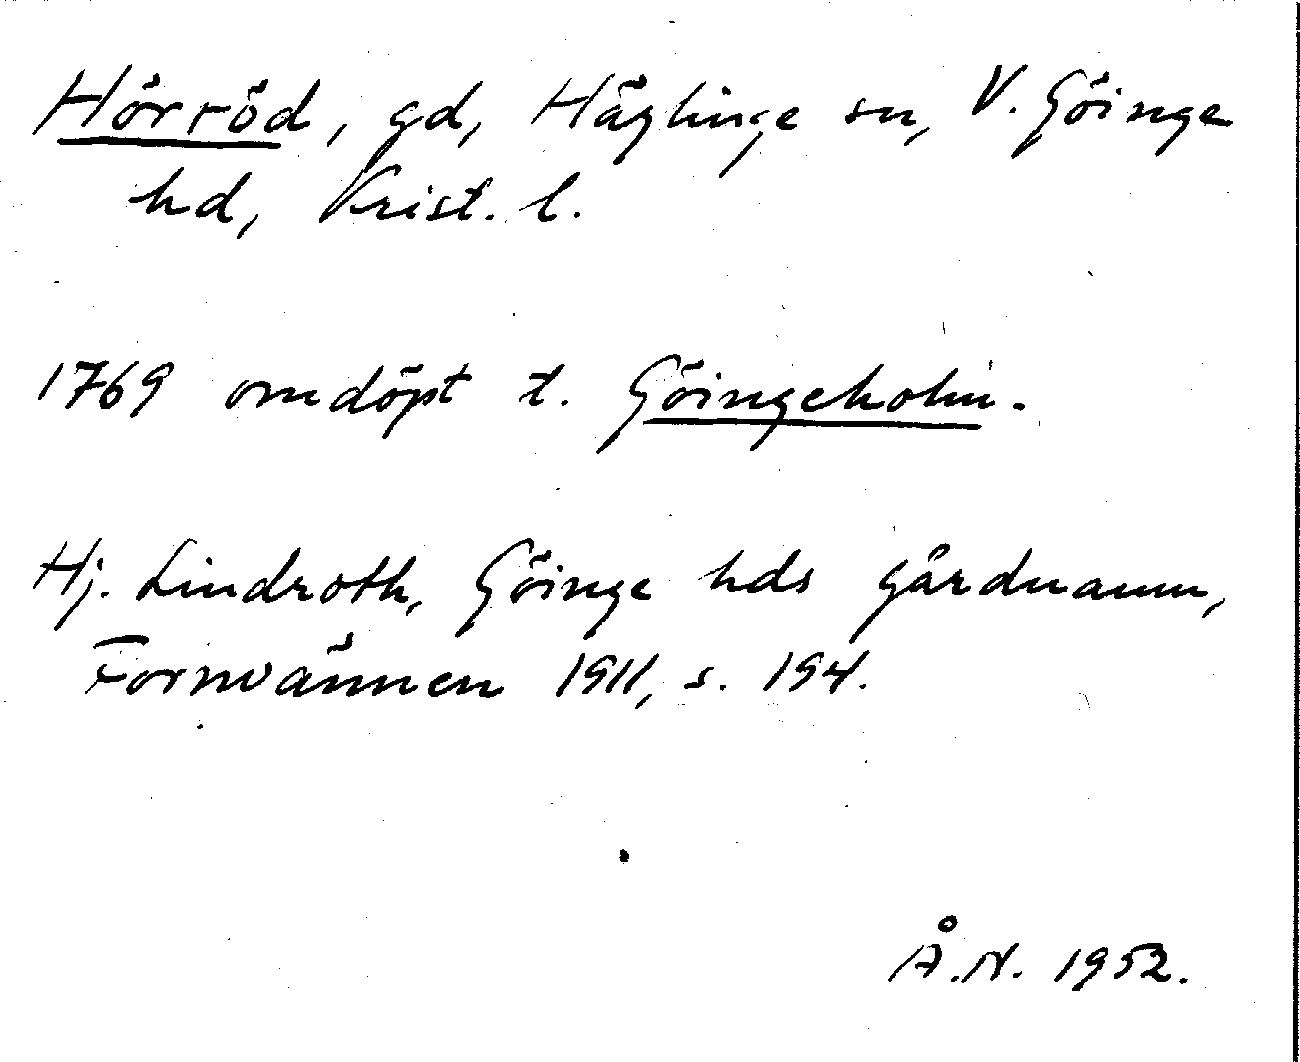 Hörröd, gd, Häglinge sn, V. Göinge
hd, Krist. l.
1769 omdöpt t. Göingeholm.
Hj. Lindroth, Göinge hds gårdnamn,
Fornvännen 1911, s. 194.
Å.N. 1952.